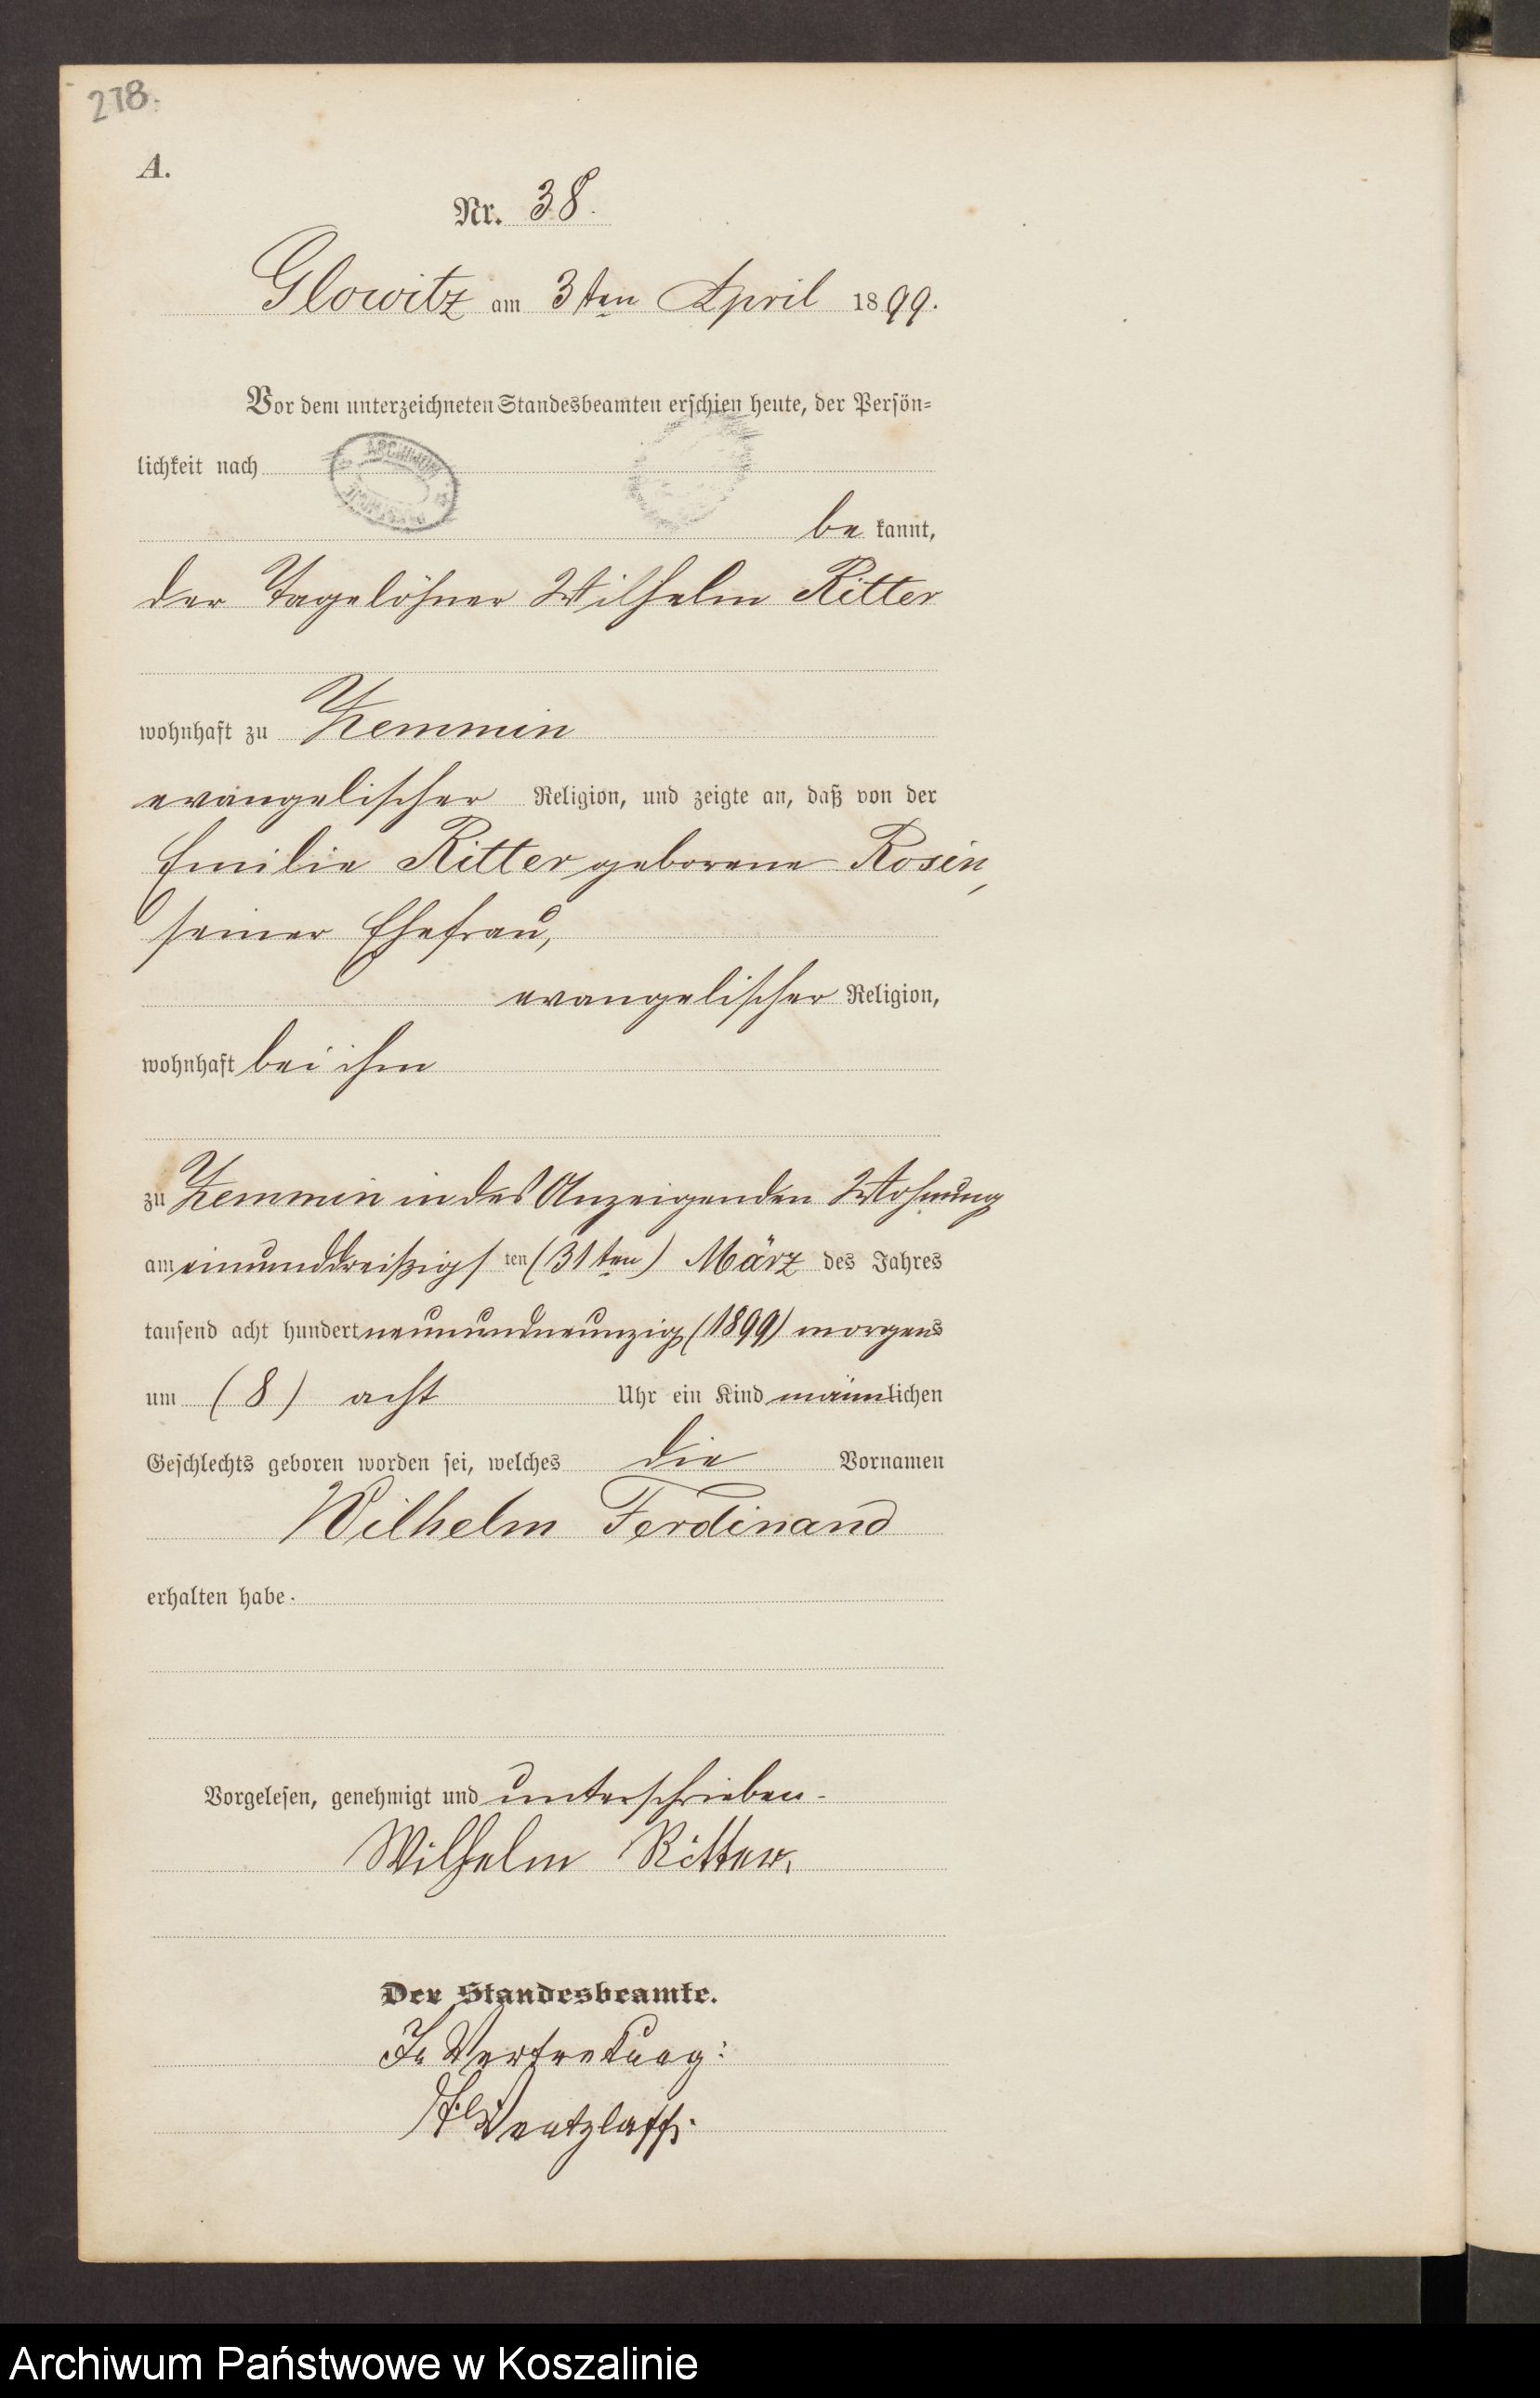 218.
A.
Nr. 38.
Glowitz am 3ten April 1899.
Vor dem unterzeichneten Standesbeamten erschien heute, der Persön-
lichkeit nach
ARCHIWUM
be kannt,
der Tagelöhner Wilhelm Ritter
wohnhaft zu Zemmin
evangelischer Religion, und zeigte an, daß von der
Emilie Ritter geborene Rosin,
seiner Ehefrau,
evangelischer Religion,
wohnhaft bei ihm
zu Zemmin in des Anzeigenden Wohnung
am einunddreißigs ten (31ten) März des Jahres
tausend acht hundert neunundneunzig (1899) morgens
um (8) acht Uhr ein Kind männlichen
Geschlechts geboren worden sei, welches die Vornamen
Wilhelm Ferdinand
erhalten habe.
Vorgelesen, genehmigt und unterschrieben.
Wilhelm Ritter.
Der Standesbeamte.
In Vertretung:
Wentzlaff.
Archiwum Państwowe w Koszalinie